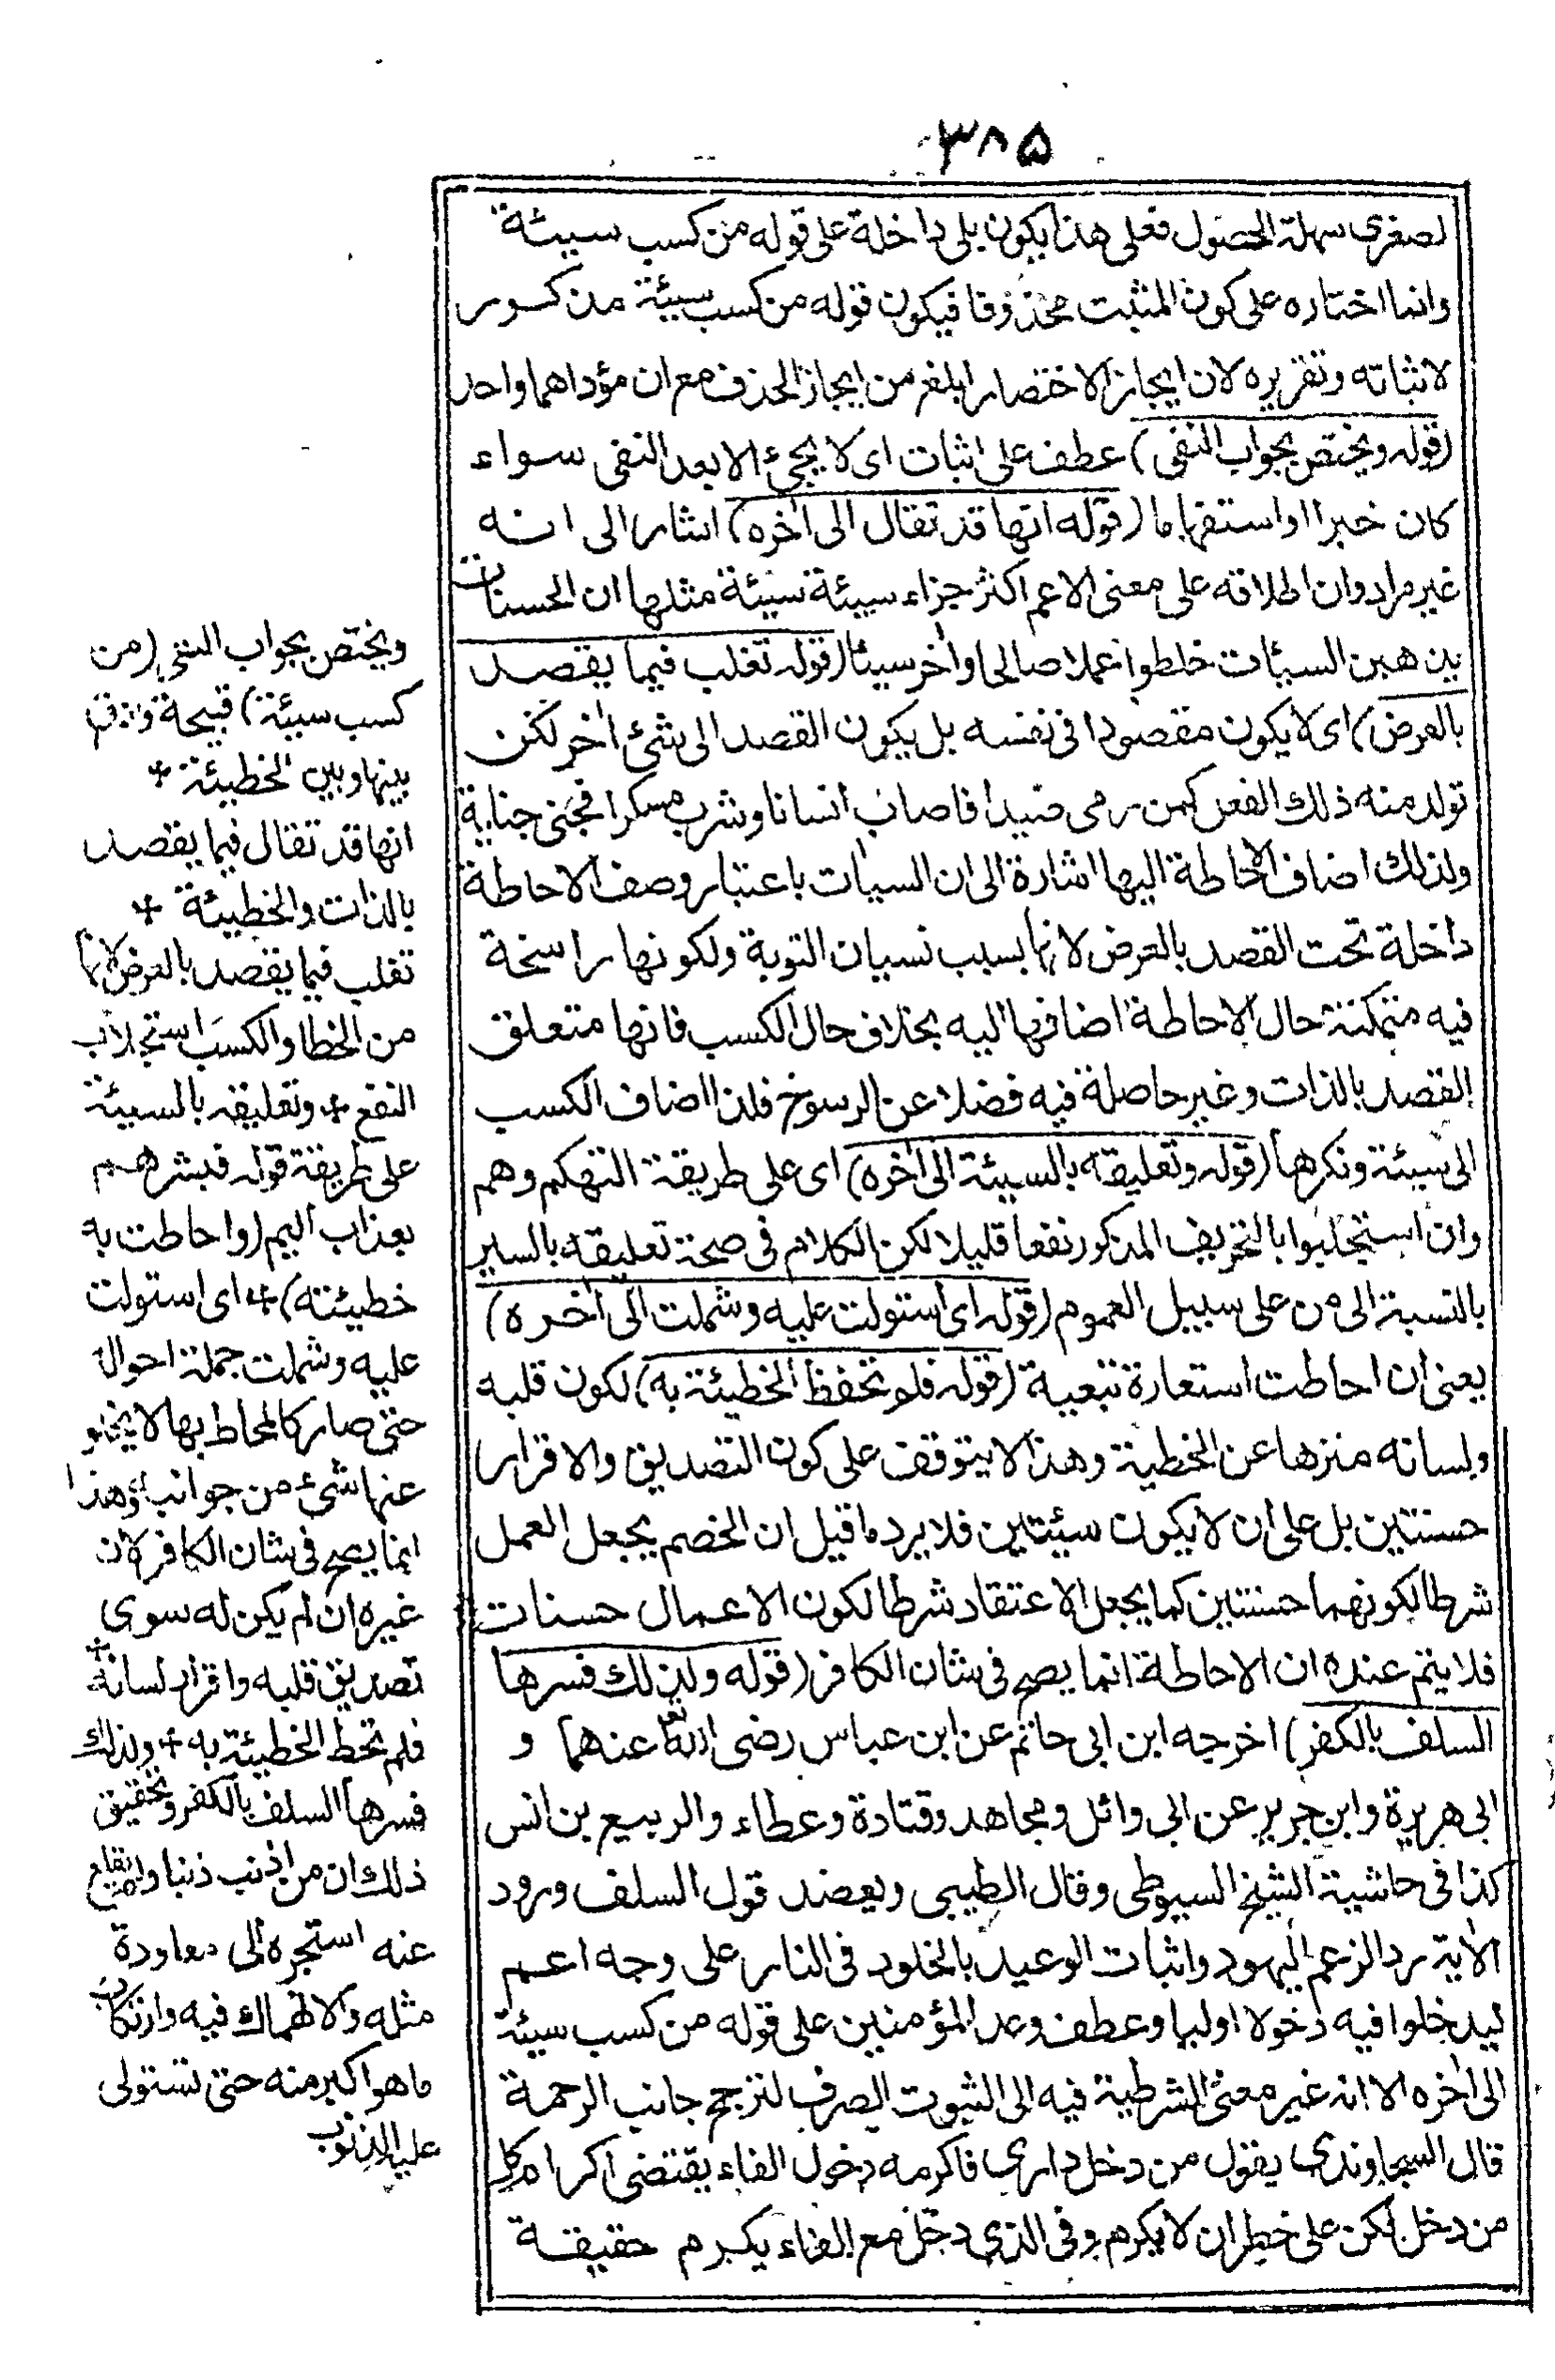 ٣٨٥
لصغرى سهلة الحصول فعلى هذا يكون بلى داخلة على قوله من كسب سيئة
وانما اختاره على كون المثبت محذوفا فيكون قوله من كسب سيئة مذكور
لاثباته وتقريره لان ايجاز الاختصار ابلغ من ايجاز الحذف مع ان مؤداهما واحد
(قوله ويختص بجواب النفى) عطف على اثبات اى لا يجئ الا بعد النفى سواء
كان خبرا او استفهاما (قوله انها قد تقال الى اخره) اشار الى انه
غير مراد وان اطلاقه على معنى الاعم اكثر جزاء سيئة سيئة مثلها ان الحسنات
يذهبن السيئات خلطوا عملا صالحا واخر سيئا (قوله تغلب فيما يقصد
بالعرض) اى لا يكون مقصودا فى نفسه بل يكون القصد الى شئ اخر لكن
تولد منه ذلك الفعل كمن رمى صيدا فاصاب انسانا وشرب مسكرا فجنى جناية
ولذلك اضاف الاحاطة اليها اشارة الى ان السيات باعتبار وصف الاحاطة
داخلة تحت القصد بالعرض لانها بسبب نسيان التوبة ولكونها راسخة
فيه متمكنة حال الاحاطة اضافها اليه بخلاف حال الكسب فانها متعلق
القصد بالذات وغير حاصلة فيه فضلا عن الرسوخ فلذا اضاف الكسب
الى سيئة ونكرها (قوله وتعليقه بالسيئة الى اخره) اى على طريقة التهكم وهم
وان استجلبوا بالتحريف المذكور نفعا قليلا لكن الكلام فى صحة تعليقه بالسير
بالنسبة الى من على سبيل العموم (قوله اى استولت عليه وشملت الى اخره)
يعنى ان احاطت استعارة تبعية (قوله فلم تحفظ الخطيئة به) لكون قلبه
ولسانه منزها عن الخطية وهذا لا يتوقف على كون التصديق والاقرار
حسنتين بل على ان لا يكون سيئتين فلا يرد ما قيل ان الخصم يجعل العمل
شرطا لكونهما حسنتين كما يجعل الاعتقاد شرطا لكون الاعمال حسنات
فلا يتم عنده ان الاحاطة انما يصح فى شان الكافر (قوله ولذلك فسرها
السلف بالكفر) اخرجه ابن ابى حاتم عن ابن عباس رضى الله تعا عنهما و
ابى هريرة وابن جرير عن ابى وائل ومجاهد وقتادة وعطاء والربيع بن انس
كذا فى حاشية الشيخ السيوطى وقال الطيبى ويعضد قول السلف ورود
الاية رد الزعم اليهود واثبات الوعيد بالخلود فى النار على وجه اعم
ليدخلوا فيه دخولا اوليا وعطف وعد المؤمنين على قوله من كسب سيئة
الى اخره الا انه غير معنى الشرطية فيه الى الثبوت الصرف لترجح جانب الرحمة
قال السجاوندى يقول من دخل دارى فاكرمه دخول الفاء يقتضى اكرام كل
من دخل لكن على خطر ان لا يكرم وفى الذى دخل مع الفاء يكرم حقيقة
ويختص بجواب النفى (من
كسب سيئة) قبيحة والفرق
بينها وبين الخطيئة +
انها قد تقال فيما يقصد
بالذات والخطيئة +
تغلب فيما يقصد بالعرض لانها
من الخطا والكسب استجلاب
النفع + وتعليقه بالسيئة
على طريقة قوله فبشرهم
بعذاب اليم (واحاطت به
خطيئته) + اى استولت
عليه وشملت جملة احواله
حتى صار كالمحاط بها لا يخلو
عنها شئ من جوانبه وهذا
انما يصح فى شان الكافر لان
غيره ان لم يكن له سوى
تصديق قلبه واقرار لسانه +
فلم تحط الخطيئة به + ولذلك
فسرها السلف بالكفر وتحقيق
ذلك ان من اذنب ذنبا ولم يقلع
عنه استجره الى معاودة
مثله والانهماك فيه وارتكاب
ما هو اكبر منه حتى تستولى
عليه الذنوب